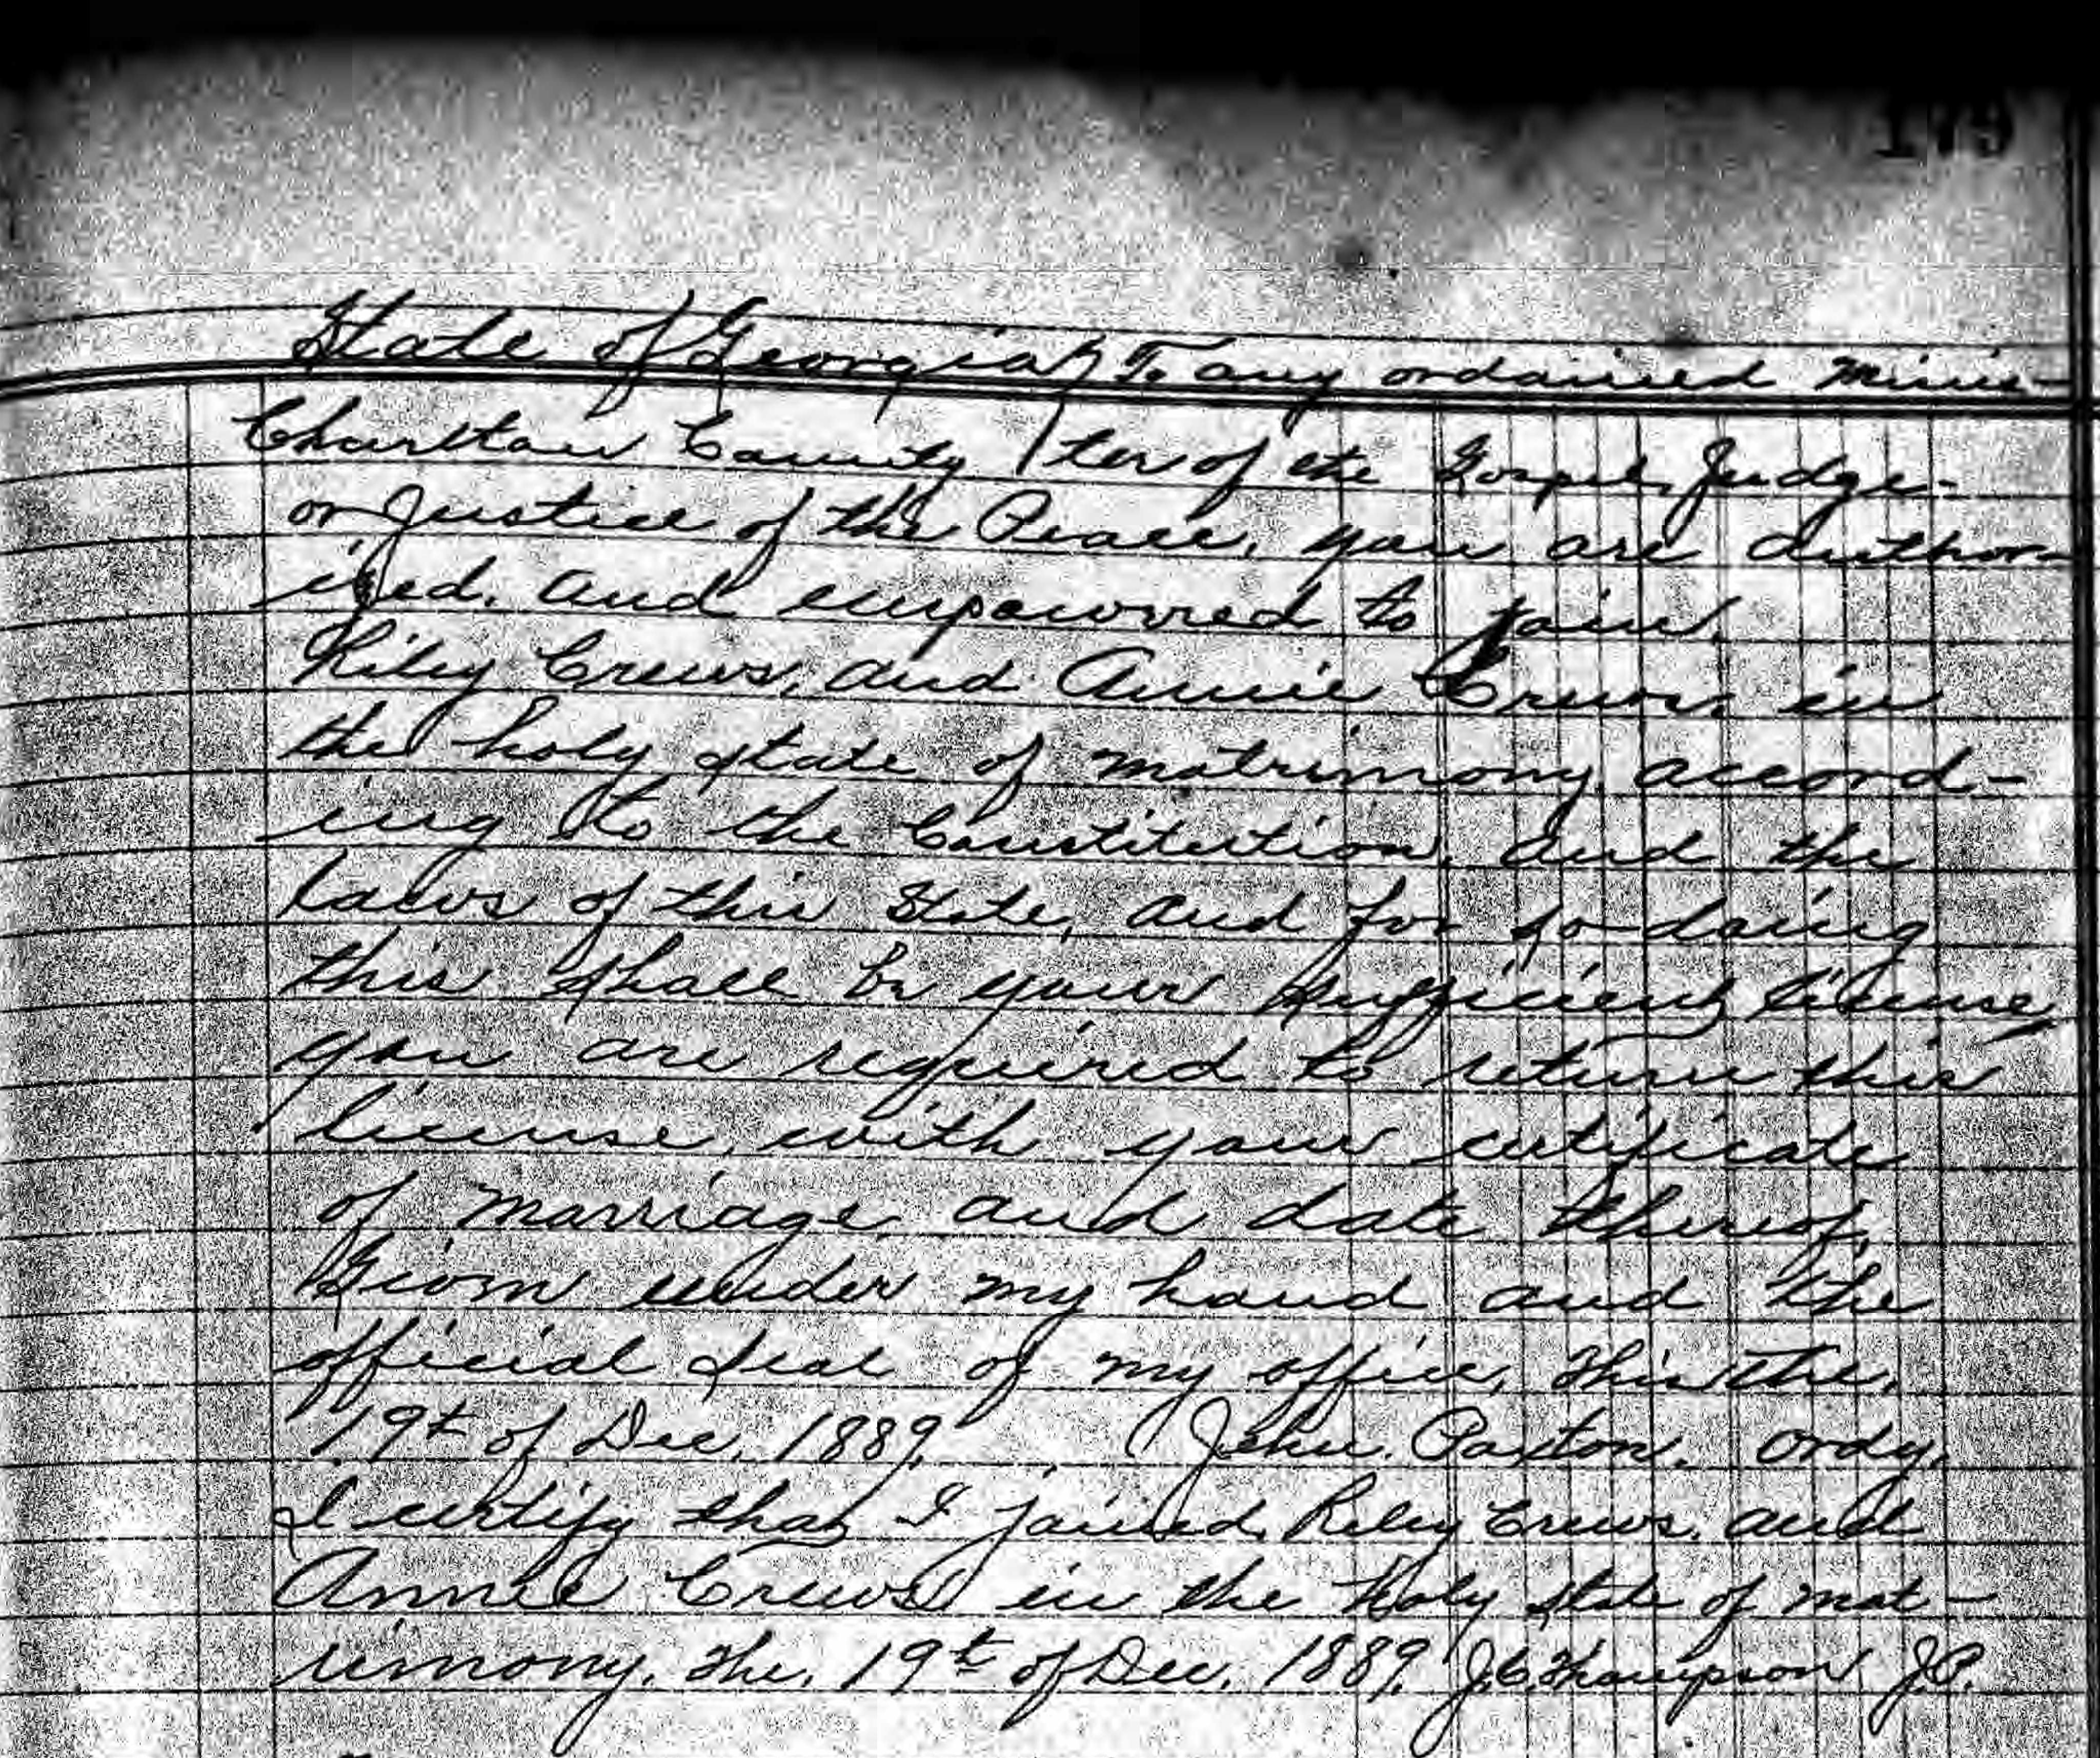 179
State of Georgia } To any ordained minis-
Charlton County } ter of the Gospel, Judge-
or Justice of the Peace, you are author-
ized, and empowered to join,
Riley Crews, and Annie Crews, in
the holy state of matrimony, accord-
ing to the Constitution, and the
Laws of this State, and for so doing
this shall be your sufficient license,
you are required to return this
license, with your certificate
of marriage and date thereof,
Given under my hand and the
official seal of my office, this the,
19th of Dec, 1889, John Paxton, Ordy,
I certify that I joined, Riley Crews, and
Annie Crews in the Holy state of mat-
rimony, the, 19th of Dec, 1889, J.C. Thompson J.P.